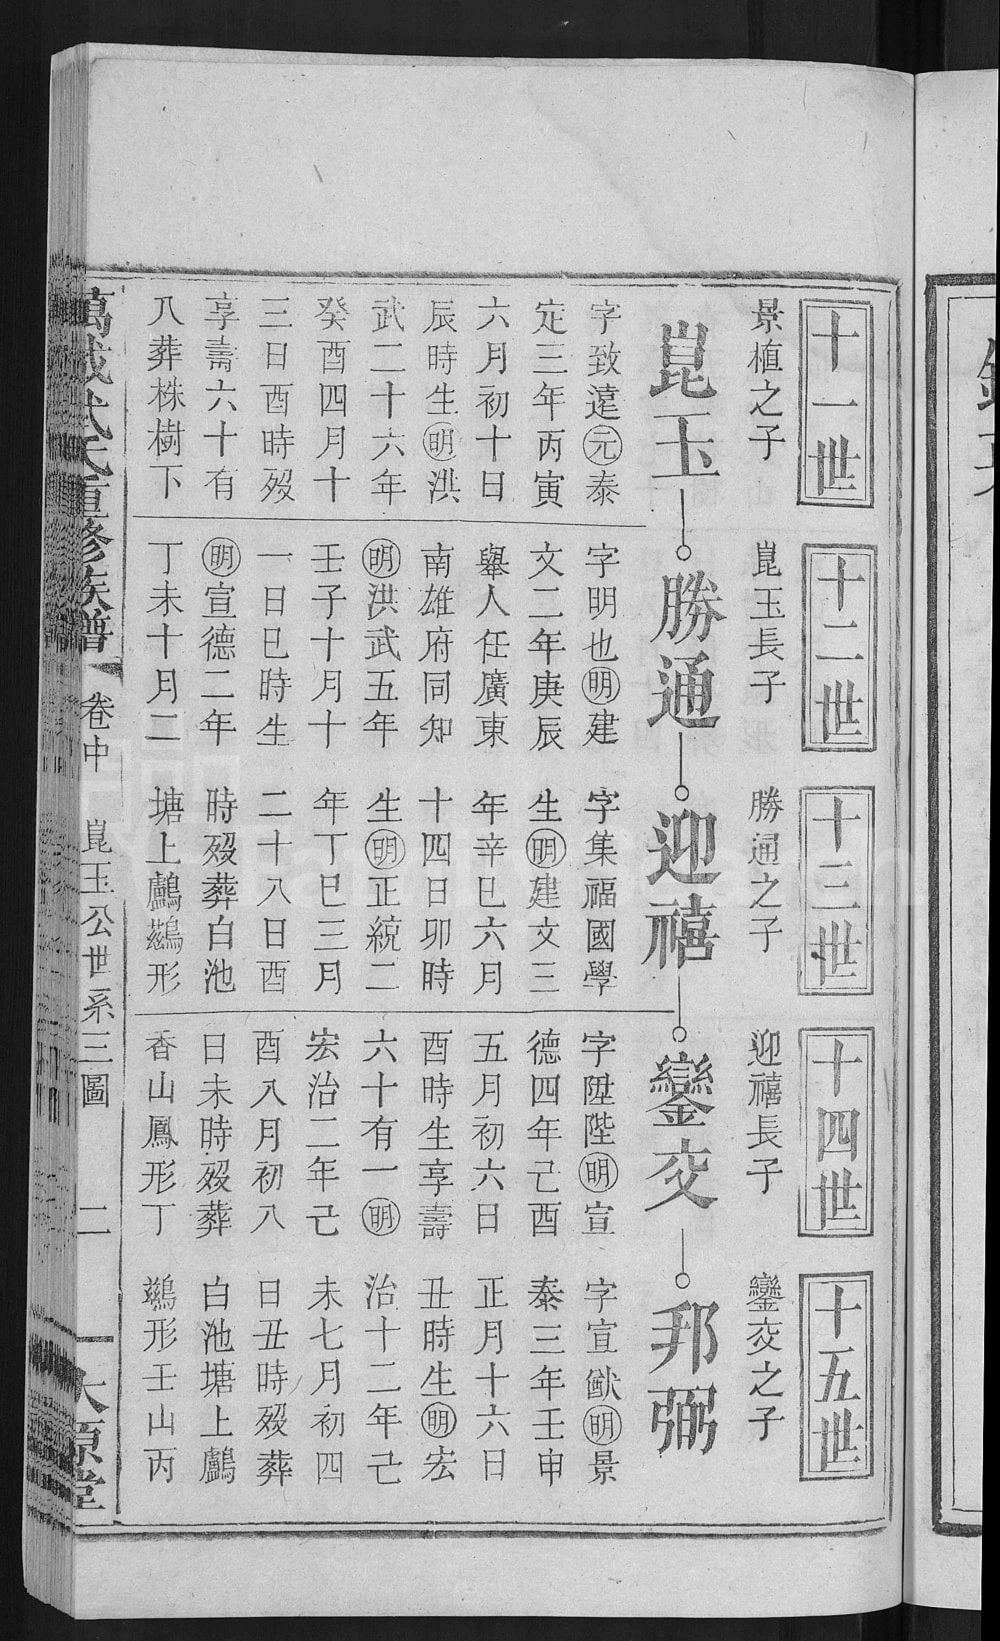 十一世
景植之子
崑玉
字致遠元泰
定三年丙寅
六月初十日
辰時生明洪
武二十六年
癸酉四月十
三日酉時歿
享壽六十有
八葬株樹下
十二世
崑玉長子
勝通
字明也明建
文二年庚辰
舉人任廣東
南雄府同知
明洪武五年
壬子十月十
一日巳時生
明宣德二年
丁未十月二
十三世
勝通之子
迎禧
字集福國學
生明建文三
年辛巳六月
十四日卯時
生明正統二
年丁巳三月
二十八日酉
時歿葬白池
塘上鸕鷀形
十四世
迎禧長子
鑾交
字陞陛明宣
德四年己酉
五月初六日
酉時生享壽
六十有一明
宏治二年己
酉八月初八
日未時歿葬
香山鳳形丁
十五世
鑾交之子
邦弼
字宣猷明景
泰三年壬申
正月十六日
丑時生明宏
治十二年己
未七月初四
日丑時歿葬
白池塘上鸕
鷀形壬山丙
氏重修族譜
卷中
崑玉公世系三圖
二
太原堂